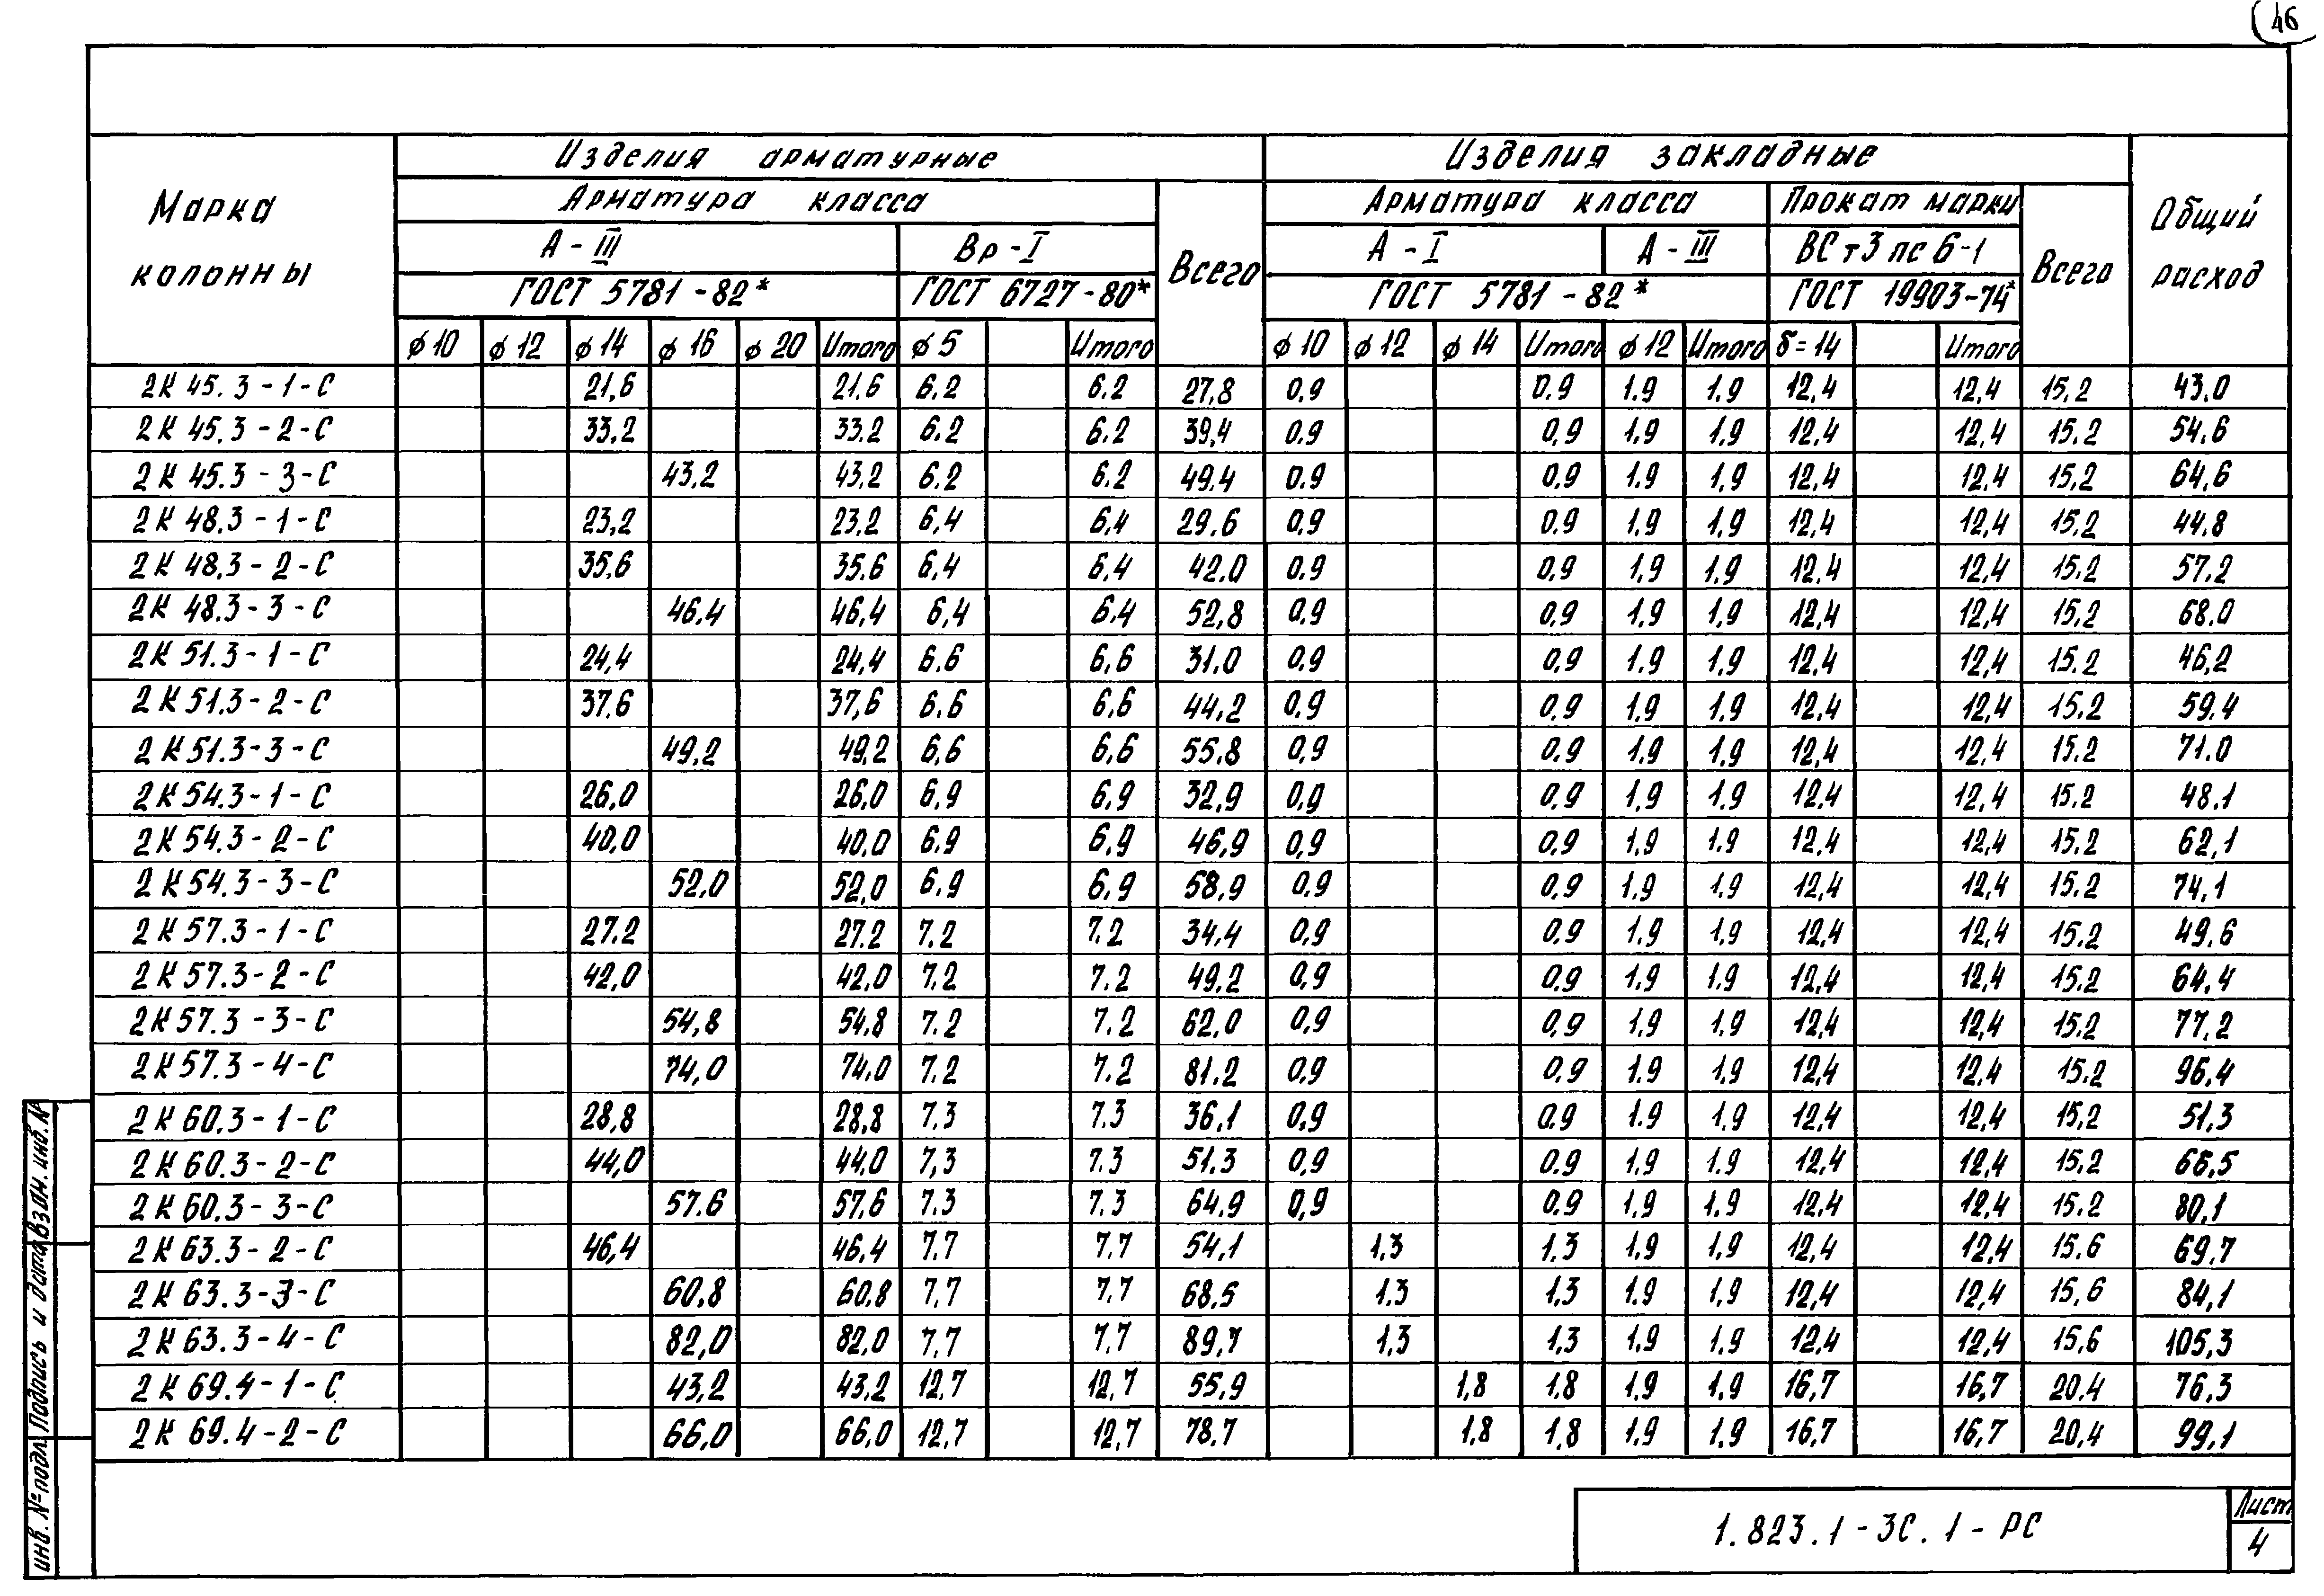 46
Изделия арматурные Изделия закладные
Марка колонны Арматура класса Всего Арматура класса Прокат марки Всего Общий расход
А-III Вр-I А-I А-III ВСт3пс6-1
ГОСТ 5781-82* ГОСТ 6727-80* ГОСТ 5781-82* ГОСТ 19903-74*
ϕ10 ϕ12 ϕ14 ϕ16 ϕ20 Итого ϕ5 Итого ϕ10 ϕ12 ϕ14 Итого ϕ12 Итого δ=14 Итого
2К 45.3-1-С 21,6 21,6 6.2 6.2 27,8 0,9 0.9 1.9 1.9 12,4 12,4 15,2 43,0
2К 45.3-2-С 33,2 33.2 6.2 6.2 39,4 0.9 0,9 1,9 1,9 12,4 12,4 15.2 54,6
2К 45.3-3-С 43,2 43,2 6.2 6.2 49.4 0.9 0.9 1,9 1,9 12,4 12,4 15,2 64,6
2К 48.3-1-С 23,2 23,2 6,4 6,4 29.6 0,9 0.9 1,9 1,9 12,4 12,4 15,2 44,8
2К 48.3-2-С 35,6 35.6 6,4 6.4 42.0 0.9 0.9 1,9 1.9 12,4 12,4 15.2 57.2
2К 48.3-3-С 46,4 46,4 6,4 6.4 52,8 0,9 0,9 1,9 1,9 12,4 12,4 15,2 68.0
2К 51.3-1-С 24,4 24,4 6.6 6,6 31.0 0,9 0,9 1.9 1,9 12,4 12,4 15.2 46,2
2К 51.3-2-С 37.6 37,6 6.6 6,6 44,2 0,9 0.9 1,9 1,9 12,4 12,4 15.2 59.4
2К 51.3-3-С 49,2 49,2 6,6 6,6 55.8 0,9 0.9 1.9 1.9 12,4 12,4 15.2 71.0
2К 54.3-1-С 26,0 26,0 6,9 6,9 32,9 0,9 0.9 1,9 1.9 12,4 12,4 15.2 48.1
2К 54.3-2-С 40,0 40,0 6.9 6,9 46,9 0,9 0.9 1,9 1.9 12,4 12,4 15.2 62,1
2К 54.3-3-С 52,0 52,0 6,9 6,9 58,9 0,9 0,9 1.9 1.9 12,4 12,4 15.2 74,1
2К 57.3-1-С 27.2 27.2 7.2 7.2 34,4 0,9 0.9 1.9 1,9 12,4 12,4 15.2 49,6
2К 57.3-2-С 42,0 42,0 7.2 7.2 49,2 0,9 0.9 1,9 1.9 12,4 12,4 15.2 64,4
2К 57.3-3-С 54,8 54,8 7.2 7.2 62.0 0,9 0,9 1.9 1.9 12,4 12,4 15.2 77,2
2К 57.3-4-С 74,0 74,0 7.2 7.2 81.2 0,9 0.9 1.9 1,9 12,4 12,4 15.2 96,4
2К 60.3-1-С 28,8 28,8 7.3 7.3 36,1 0,9 0.9 1.9 1.9 12,4 12,4 15,2 51,3
2К 60.3-2-С 44,0 44,0 7,3 7.3 51.3 0,9 0.9 1,9 1.9 12,4 12,4 15.2 66,5
2К 60.3-3-С 57.6 57,6 7.3 7.3 64.9 0,9 0.9 1,9 1.9 12,4 12,4 15.2 80,1
2К 63.3-2-С 46,4 46,4 7.7 7.7 54.1 1,3 1.3 1,9 1,9 12,4 12,4 15.6 69,7
2К 63.3-3-С 60,8 60,8 7.7 7.7 68,5 1.3 1,3 1.9 1,9 12,4 12,4 15,6 84,1
2К 63.3-4-С 82,0 82,0 7,7 7.7 89,7 1,3 1,3 1.9 1,9 12,4 12,4 15,6 105,3
2К 69.4-1-С 43,2 43,2 12,7 12,7 55,9 1,8 1.8 1,9 1,9 16,7 16,7 20.4 76,3
2К 69.4-2-С 66,0 66,0 12,7 12,7 78.7 1,8 1,8 1.9 1.9 16,7 16,7 20,4 99,1
1.823.1-3С.1-РС
Лист
4
Инв. № подл. Подпись и дата Взам. инв. №